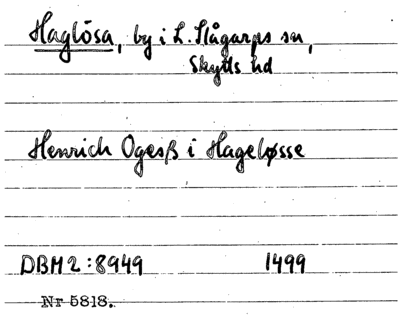 Haglösa, by i L. Slågarps sn,
Skytts hd
Henrich Ogesß i Hageløsse
DBM 2:8949 1499
Nr 5818.